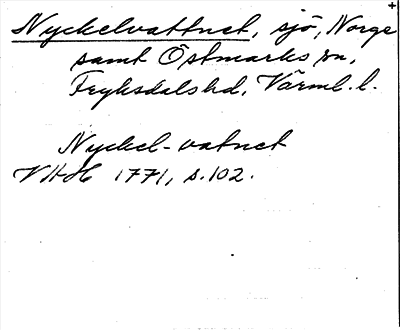 Nyckelvattnet, sjö, Norge
samt Östmarks sn,
Fryksdals hd, Värml. l.
Nyckel-vatnet
1771, s. 102.